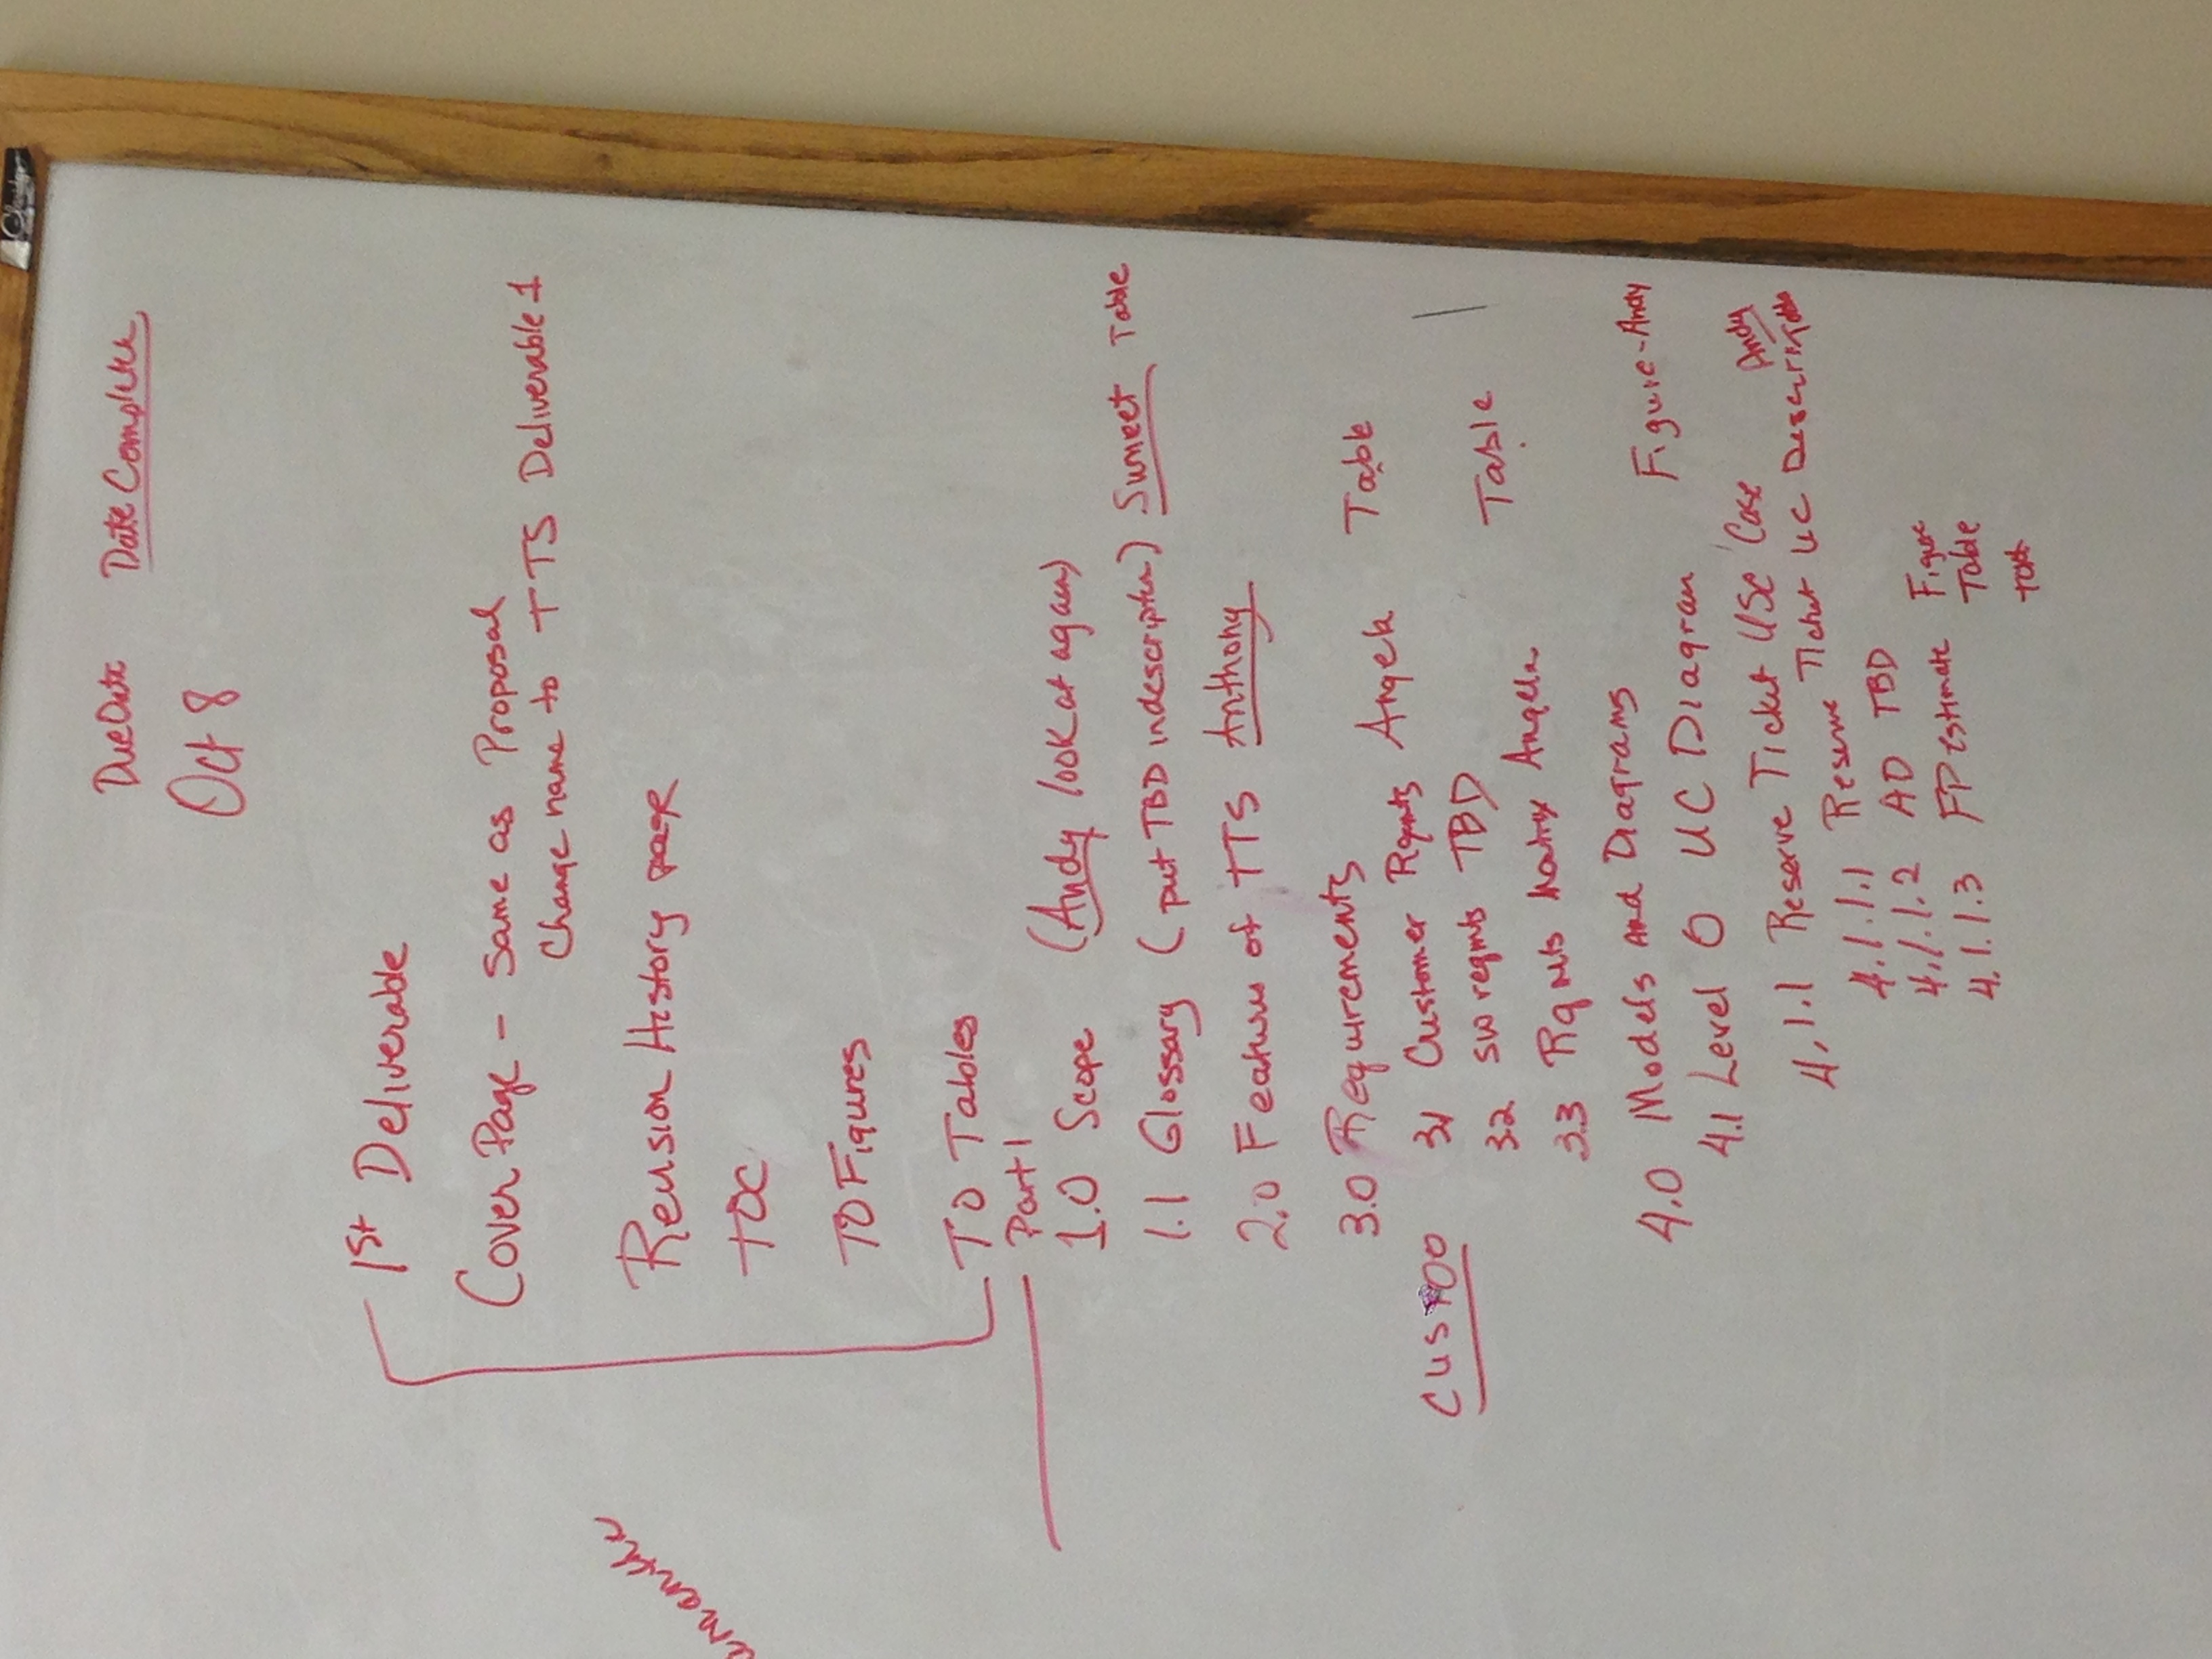 Due Date Date Complete
Oct 8
1st Deliverable
Cover Page - Same as Proposal
Change name to TTS Deliverable 1
Revision History page
amantha
TOC
TO Figures
TO Tables
Part 1
1.0 Scope (Andy look at again)
1.1 Glossary (put TBD in description) Sumeet Table
2.0 Features of TTS Anthony
3.0 Requirements
3.1 Customer Rqmts Angela Table
3.2 SW reqmts TBD
3.3 Rqmts Matrix Angela Table
4.0 Models and Diagrams
4.1 Level 0 UC Diagram Figure-Andy
4.1.1 Reserve Ticket Use Case Andy
4.1.1.1 Reserve Ticket UC Descri Table
4.1.1.2 AD TBD
4.1.1.3 FP estimate Figure
Table
text